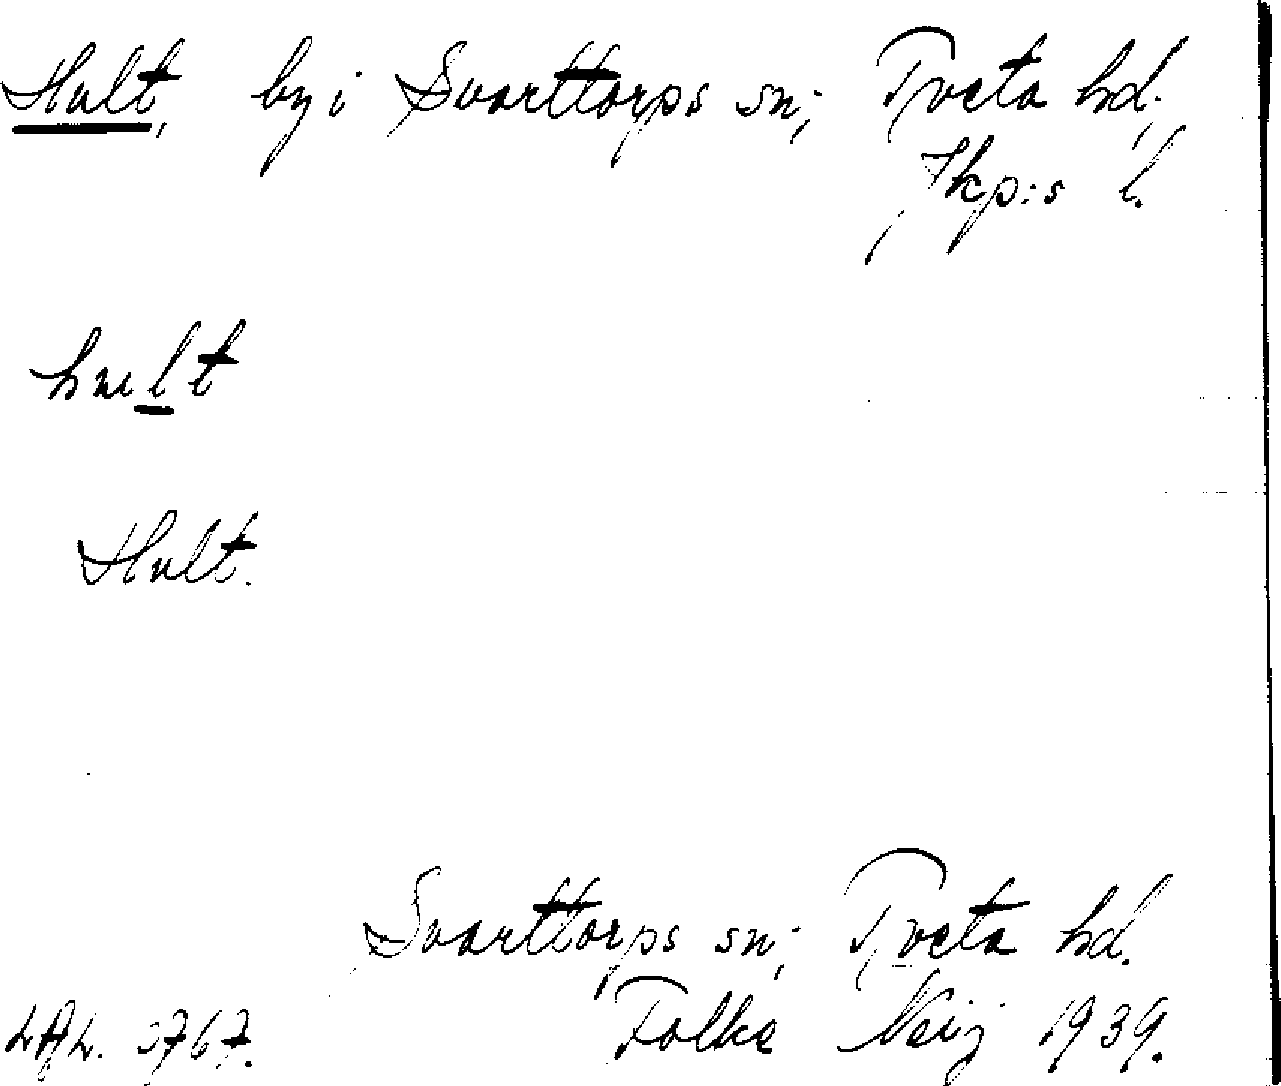 Hult, by i Svarttorps sn; Tveta hd;
Jkp:s l.
hult
Hult.
Svarttorps sn; Tveta hd.
Folke Neij 1939.
LAL. 3767.